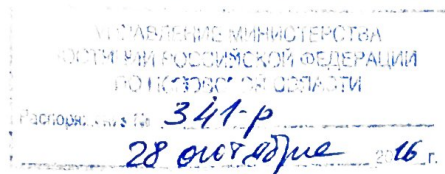 УПРАВЛЕНИЕ МИНИСТЕРСТВА
ЮСТИЦИИ РОССИЙСКОЙ ФЕДЕРАЦИИ
ПО ОБЛАСТИ
Распоряжение № 341-р
28 октября 2016 г.